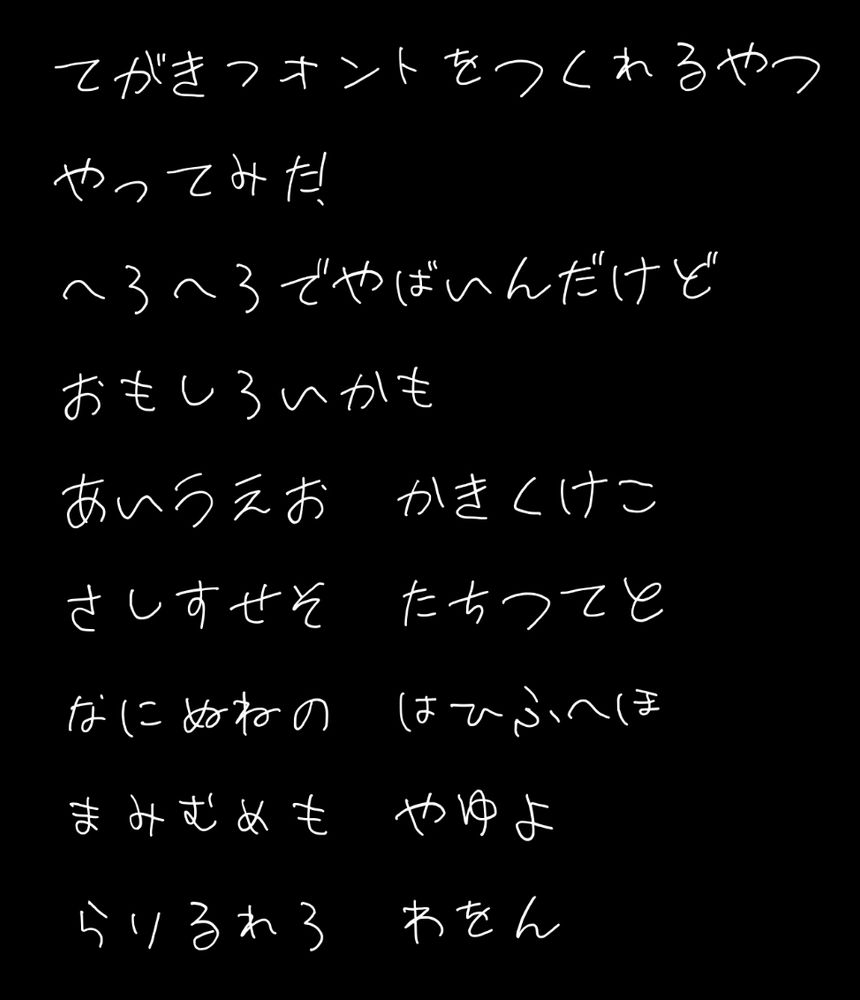 てがきフオントをつくれるやつ
やってみた!
へろへろでやばいんだけど
おもしろいかも
あいうえお　かきくけこ
さしすせそ　たちつてと
なにぬねの　はひふへほ
まみむめも　やゆよ
らりるれろ　わをん